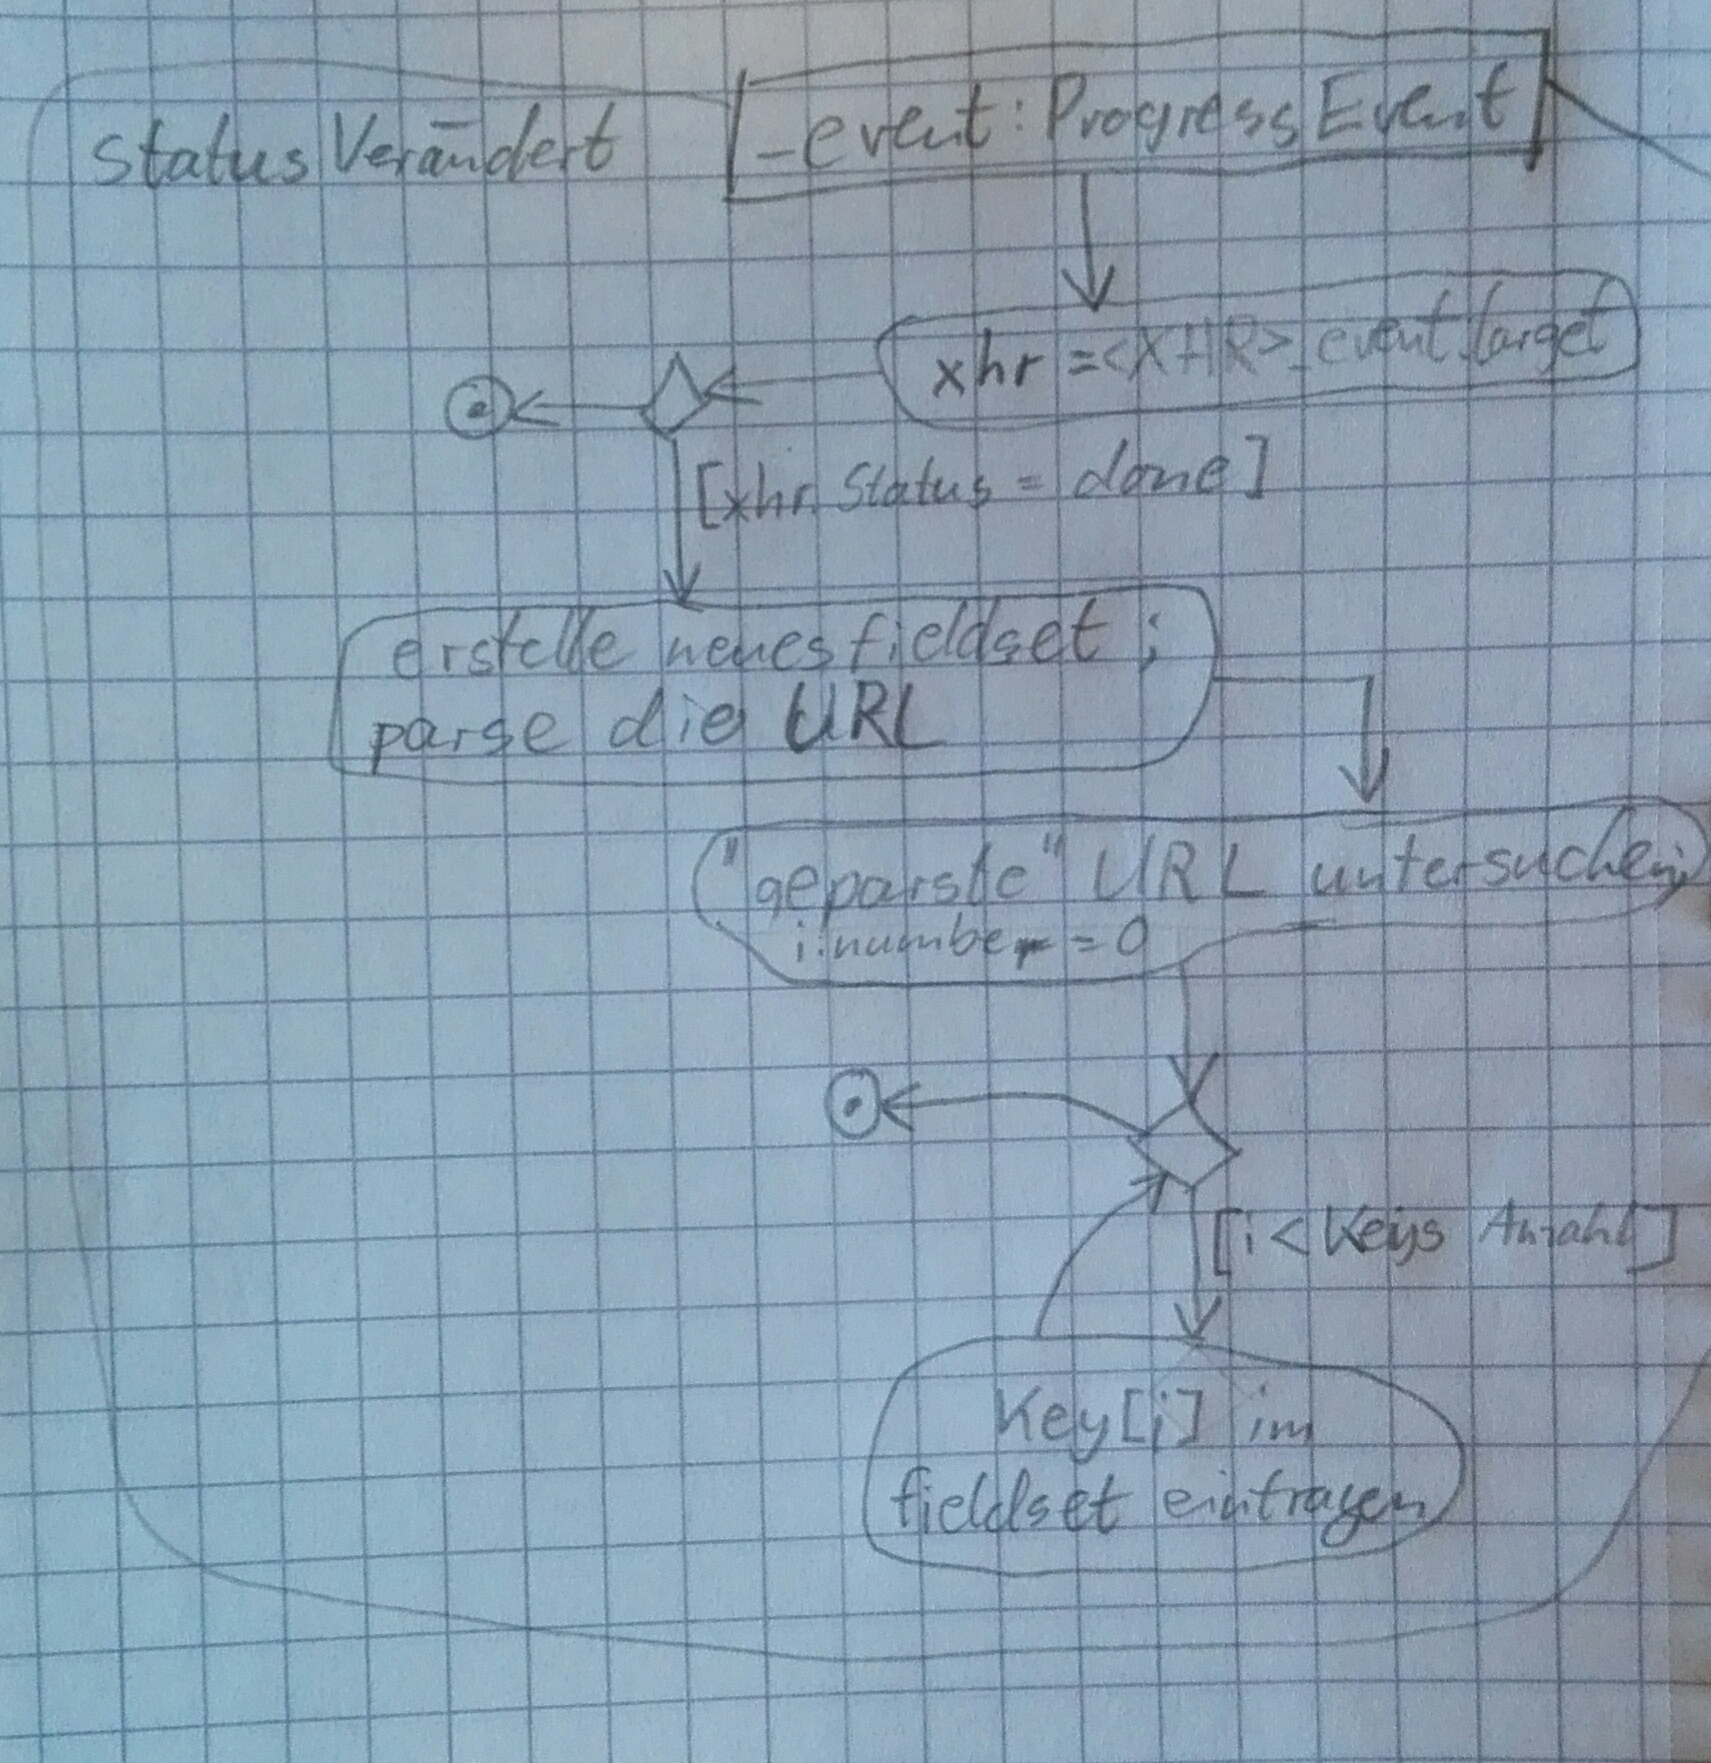 statusVerändert
_event: ProgressEvent
xhr =<XHR>_event.target
[xhr.Status = done]
erstelle neues fieldset ;
parse die URL
"geparste" URL untersuchen;
i:number = 0
[i < Keys Anzahl]
Key[i] im
fieldset eintragen